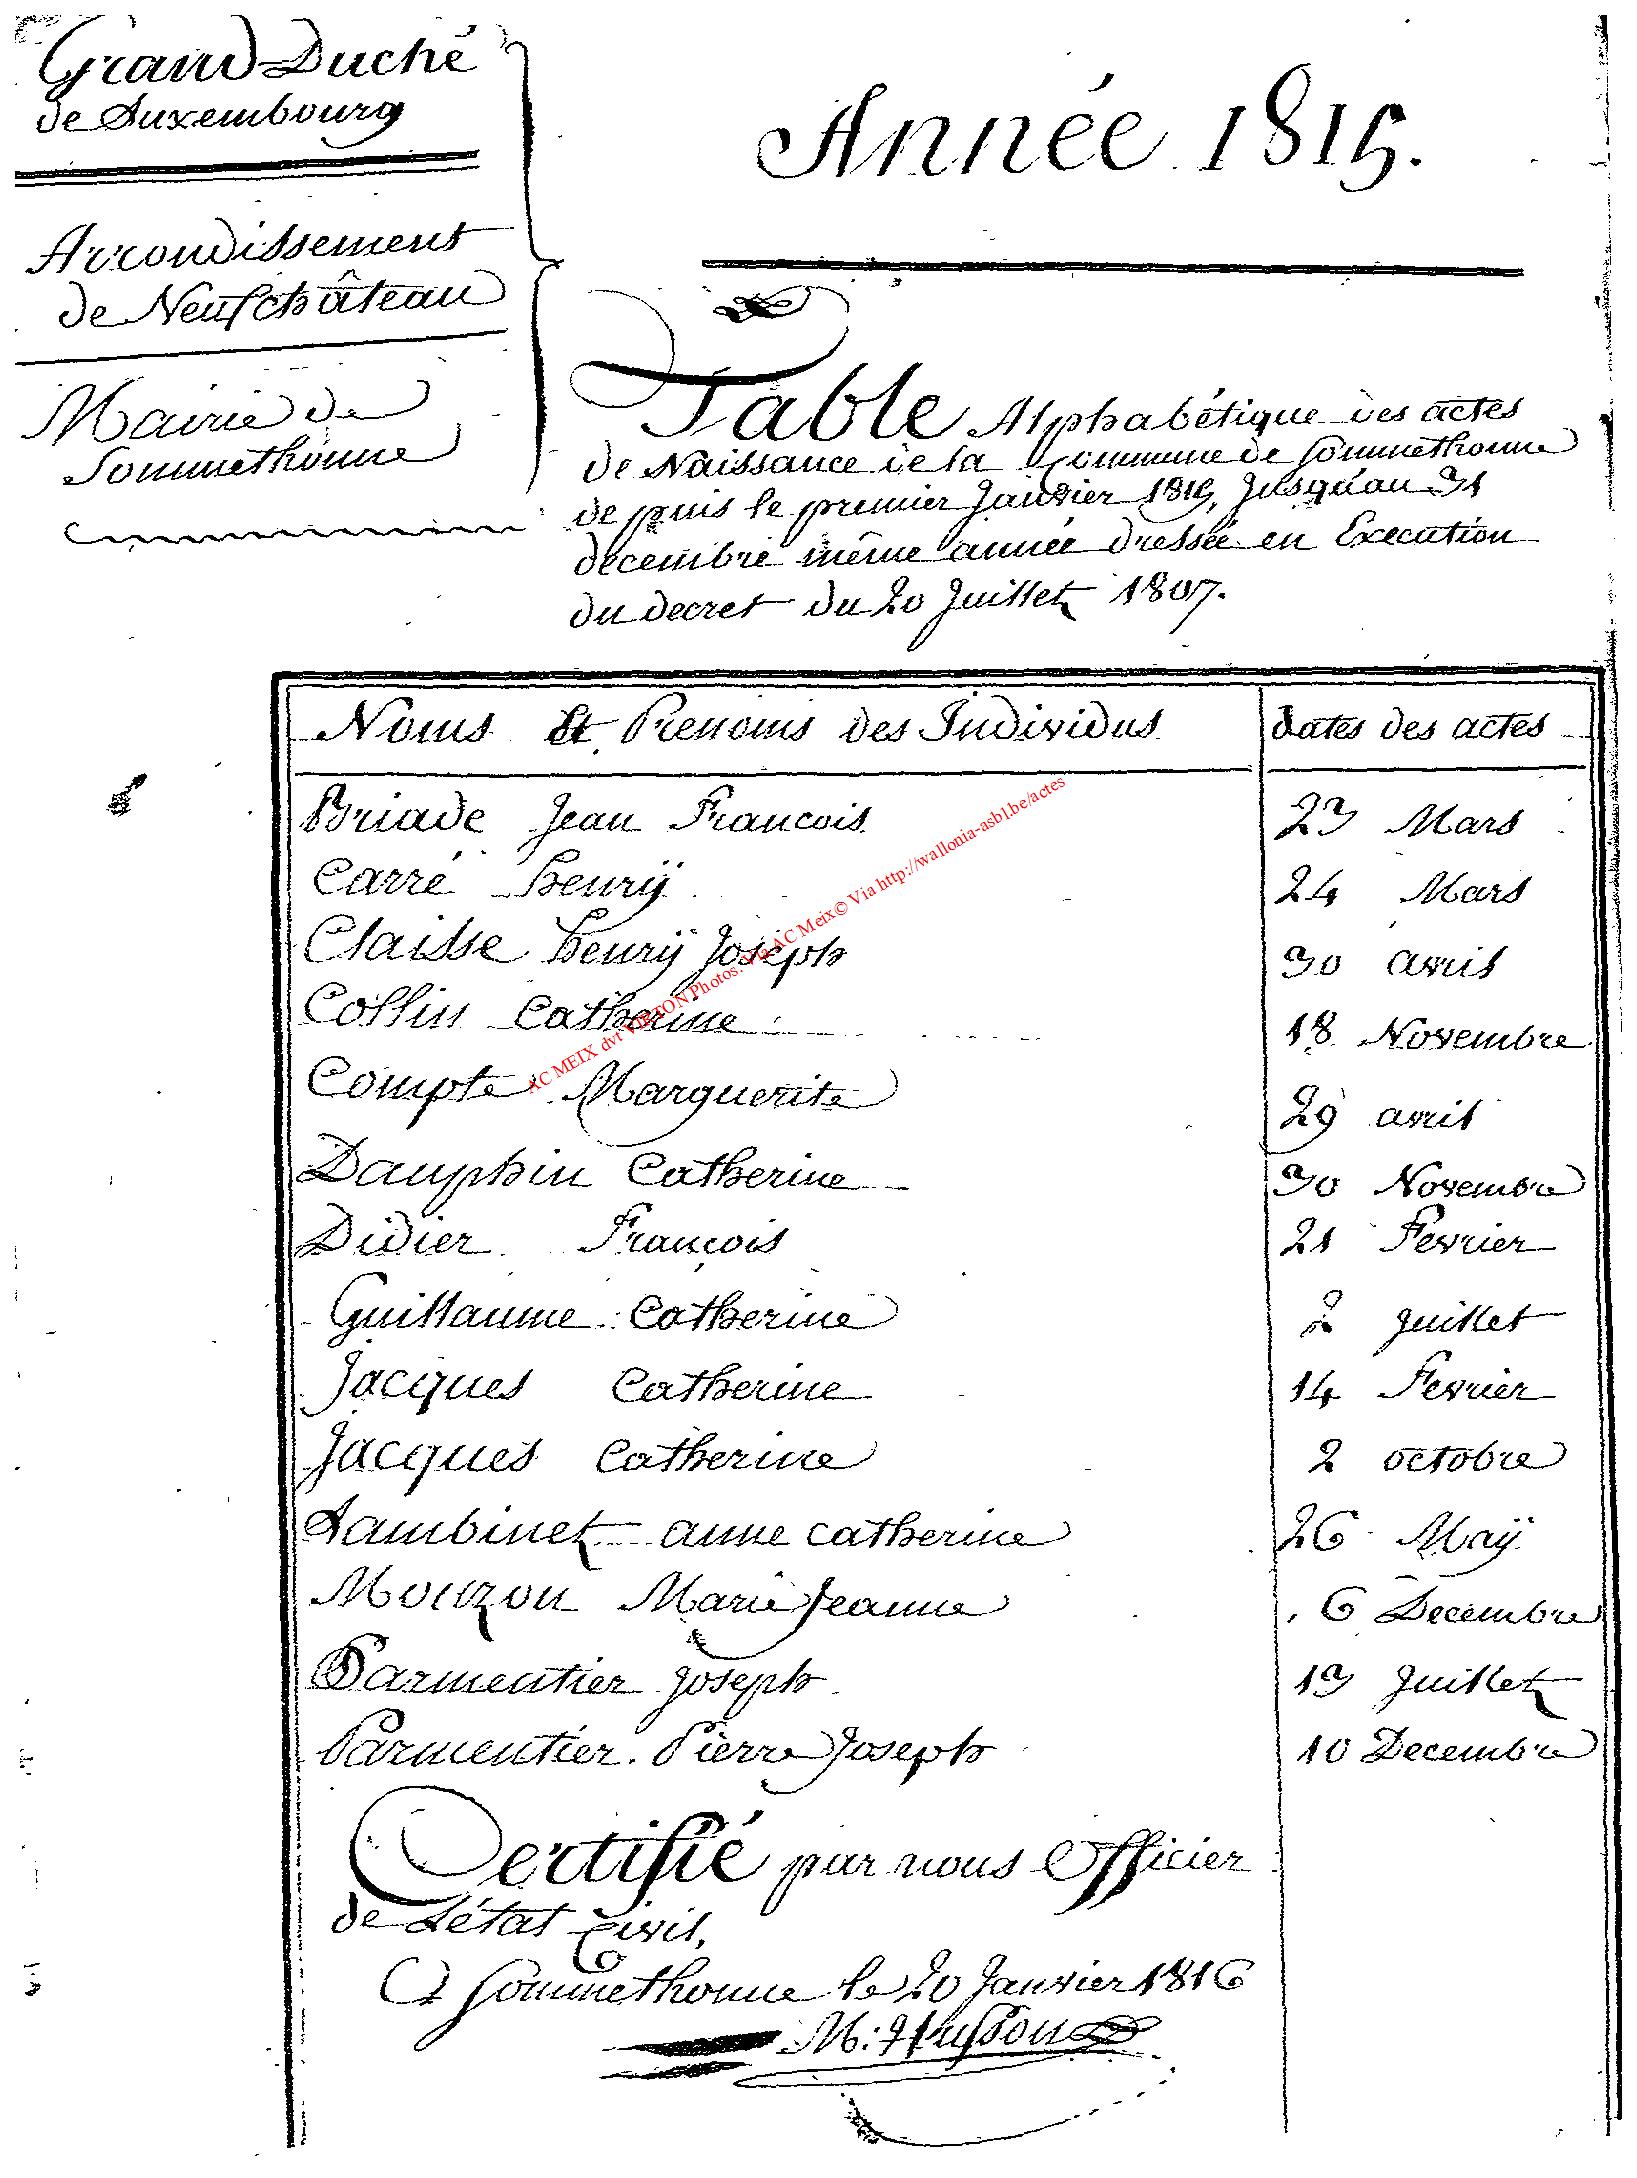 Grand-Duché
de Luxembourg
Arrondissement
de Neufchâteau
Mairie de
Sommethonne
Année 1815.
Table Alphabétique des actes
de Naissance de la Commune de Sommethonne
depuis le premier Janvier 1815, Jusqu'au 31
decembre même année dressée en Execution
du decret du 20 Juillet 1807.
Noms Et Prenoms des Individus dates des actes
Briade Jean Francois 23 Mars
Carré henrÿ 24 Mars
Claisse henrÿ Joseph 30 avril
Collin Catherine 18 Novembre
Compte Marguerite 29 avril
Dauphin Catherine 30 Novembre
Didier François 21 Fevrier
Guillaume Catherine 2 Juillet
Jacques Catherine 14 Fevrier
Jacques Catherine 2 octobre
Lambinet anne catherine 26 Maÿ
Mouzon Marie Jeanne 6 Decembre
Parmentier Joseph 13 Juillet
Parmentier Pierre Joseph 10 Decembre
Certifié par nous Officier
de L'état Civil,
A Sommethonne le 20 Janvier 1816
M: Husson
AC MEIX dvt VIRTON Photos: Via AC Meix© Via http://wallonia-asbl.be/actes